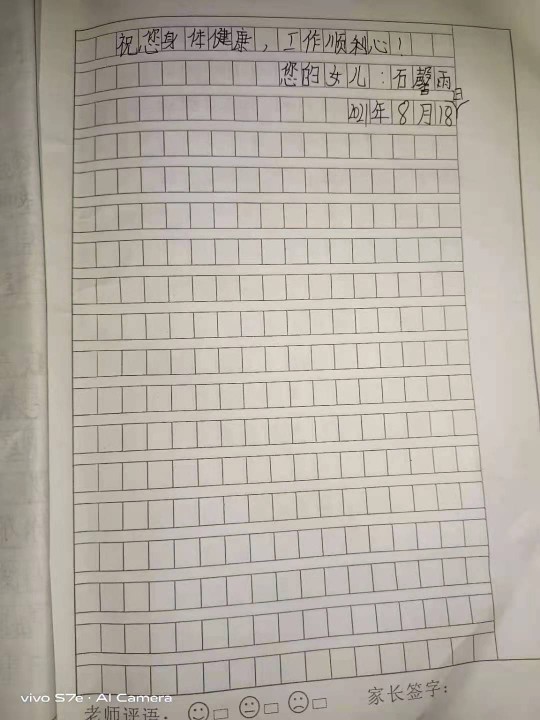 祝您身体健康，工作顺利心！
您的女儿：石馨雨
2021年8月18日
老师评语：
家长签字：
vivo S7e · AI Camera